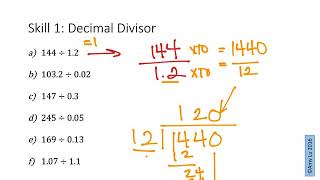 Skill 1: Decimal Divisor
=1
a) 144 ÷ 1.2
b) 103.2 ÷ 0.02
c) 147 ÷ 0.3
d) 245 ÷ 0.05
e) 169 ÷ 0.13
f) 1.07 ÷ 1.1
144 x10 = 1440
1.2 x10 12
120
12 1440
12
24
©Amy Lu 2016